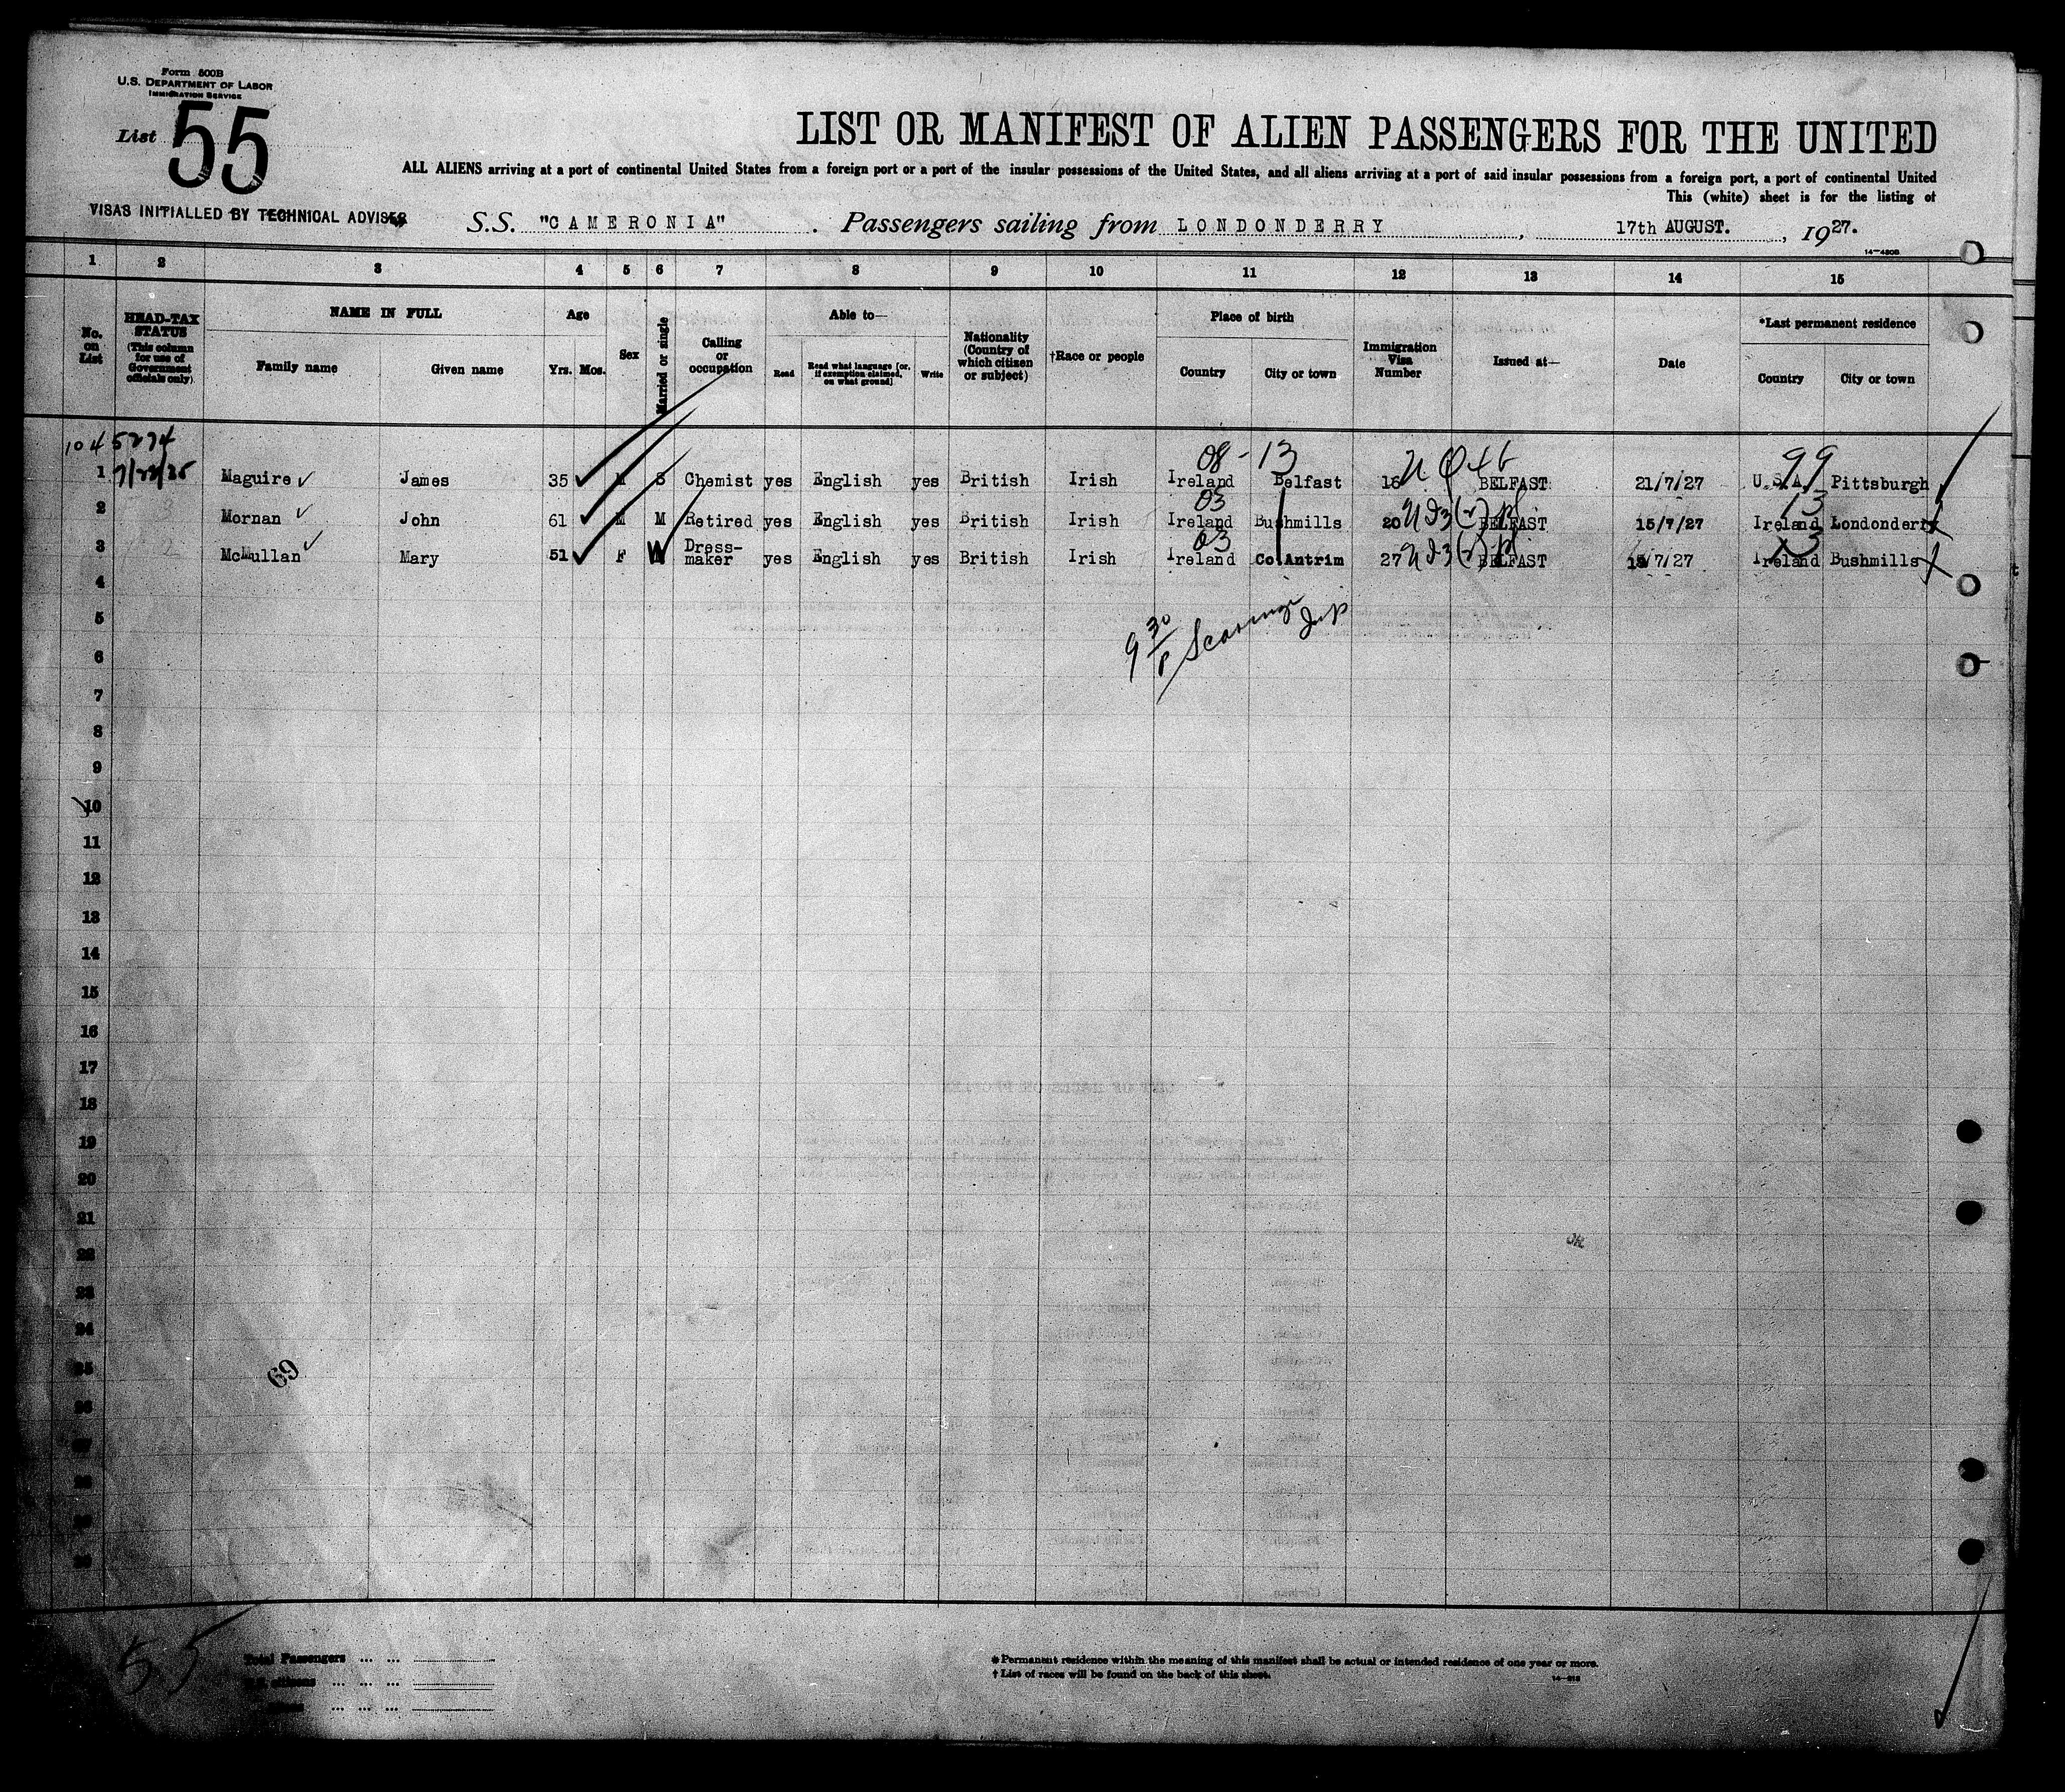 Form 500B
U.S. DEPARTMENT OF LABOR
IMMIGRATION SERVICE
List 55
LIST OR MANIFEST OF ALIEN PASSENGERS FOR THE UNITED
ALL ALIENS arriving at a port of continental United States from a foreign port or a port of the insular possessions of the United States, and all aliens arriving at a port of said insular possessions from a foreign port, a port of continental United
This (white) sheet is for the listing of
VISAS INITIALLED BY TECHNICAL ADVISER
S.S. "CAMERONIA". Passengers sailing from LONDONDERRY, 17th AUGUST., 1927.
14-430B
1 2 3 4 5 6 7 8 9 10 11 12 13 14 15
No. on List
HEAD-TAX STATUS (This column for use of Government officials only)
NAME IN FULL
Family name Given name
Age
Yrs. Mos.
Sex
Married or single
Calling or occupation
Able to—
Read
Read what language [or, if exemption claimed, on what ground]
Write
Nationality (Country of which citizen or subject)
†Race or people
Place of birth
Country City or town
Immigration Visa Number
Issued at—
Date
*Last permanent residence
Country City or town
104 5274
08-13 99
1 7/22/35 Maguire James 35 M S Chemist yes English yes British Irish Ireland Belfast 16 BELFAST 21/7/27 U.S.A. Pittsburgh
03 13
2 Mornan John 61 M M Retired yes English yes British Irish Ireland Bushmills 20 BELFAST 15/7/27 Ireland Londonderry
03 13
3 McMullan Mary 51 F W Dress-maker yes English yes British Irish Ireland Co Antrim 27 BELFAST /7/27 Ireland Bushmills
4
5
9 30
6
7
8
9
10
11
12
13
14
15
16
17
18
19
20
21
22
23
24
25
69
26
27
28
29
30
55
Total Passengers ... ...
U.S. citizens ... ... ...
*Permanent residence within the meaning of this manifest shall be actual or intended residence of one year or more.
†List of races will be found on the back of this sheet.